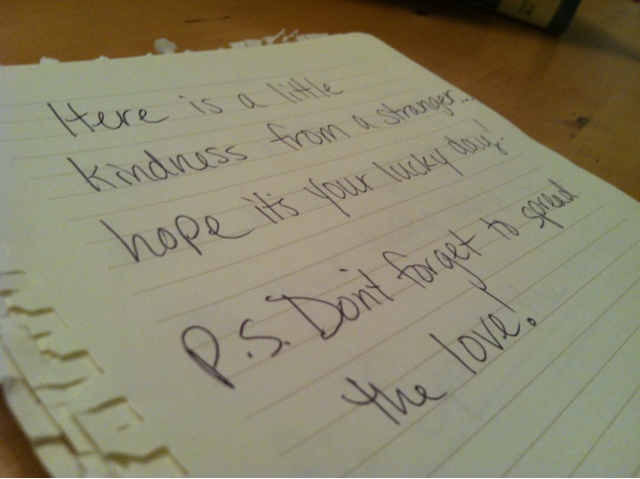 Here is a little
kindness from a stranger...
hope it's your lucky day!
P.S. Don't forget to spread
the love!